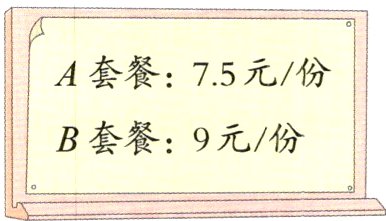 A 套餐：7.5元/份
B 套餐：9元/份